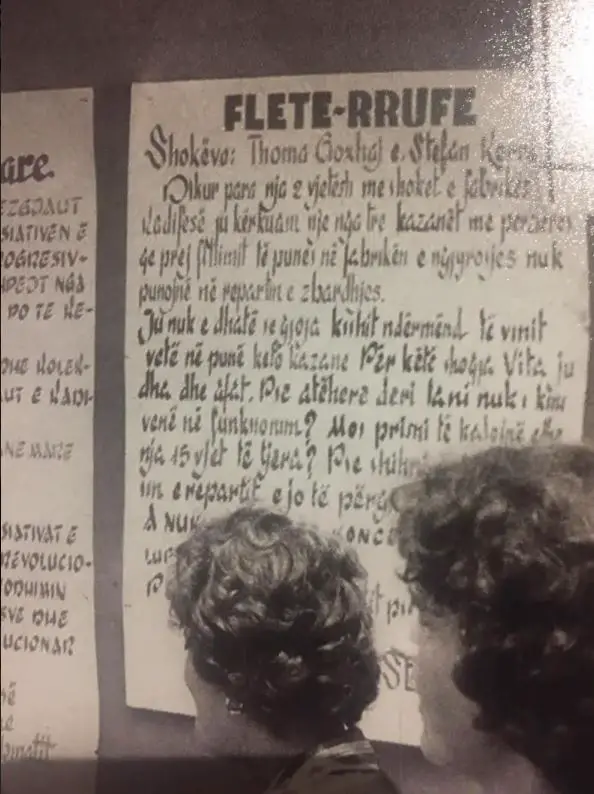 are.
EZGJAUT
SIATIVEN E
OGRESIV-
HPEJT NGA
DO TE KE-
DHE KOLEK-
AUT E KADI-
NE MARE
SIATIVAT E
REVOLUCIO-
ODHIMIN
SVE DHE
UCIONAR
së
FLETE-RRUFE
Shokëve: Thoma Goxhaj e Stefan
Dikur para nja 2 vjetësh me shoket e fabrikës
Kadifesë ju kërkuam një nga tre kazanët me perzieres
qe prej fillimit të punës në fabrikën e ngjyrosjes nuk
punojnë në repartin e zbardhjes.
Ju nuk e dhatë se gjoja kishit ndërmënd të vinit
vetë në punë keto kazane Për këtë shoqja Vita ju
dha dhe afat. Pse atëhere deri tani nuk i kini
venë në funksionim? Mos prisni të kalojnë edhe
nja 15 vjet të tjera? Pse shihni
im e repartit e jo të përg
A NUK KONCE
LUF
P
SE